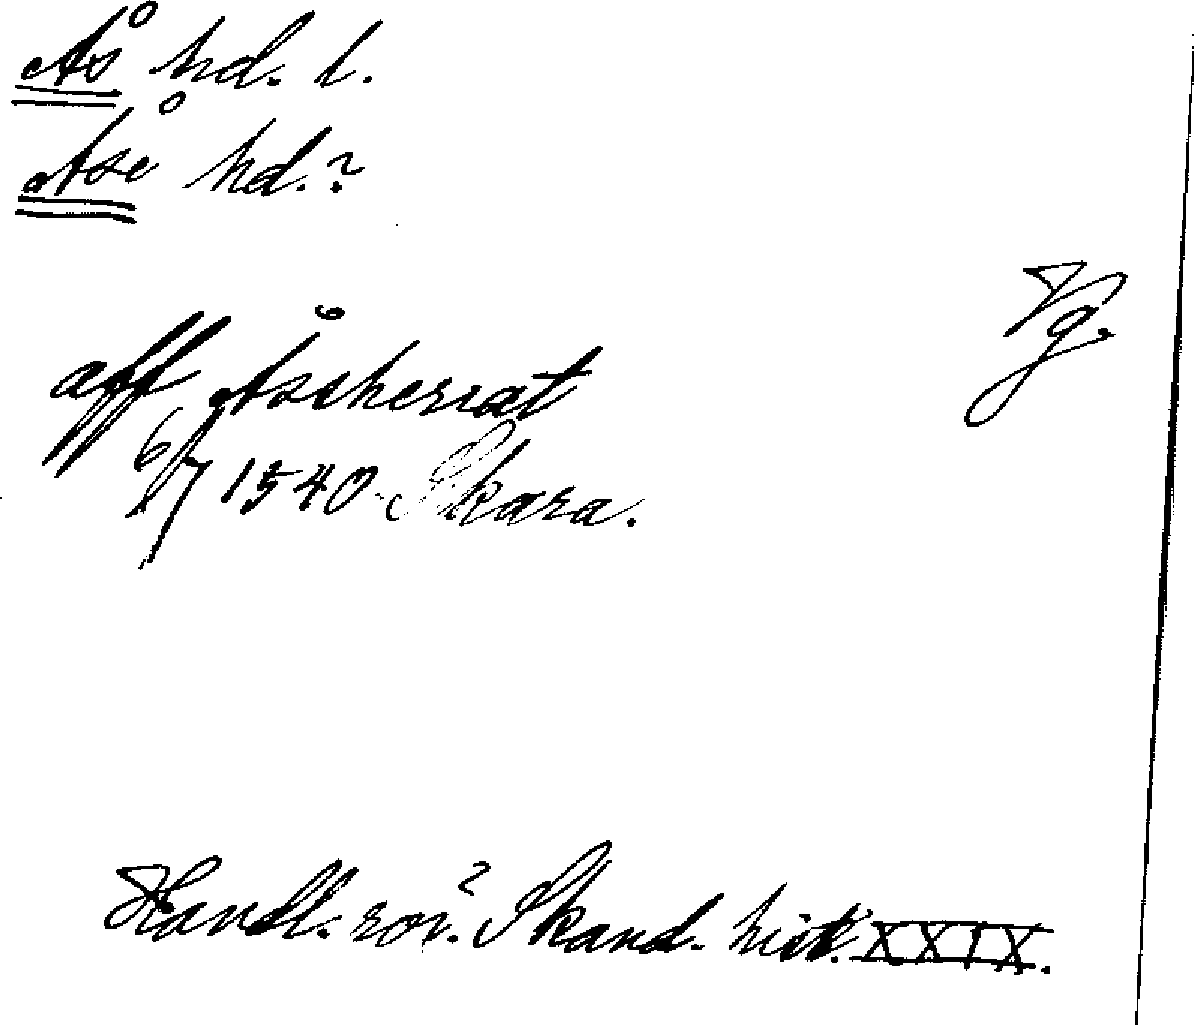 Ås hd. l.
Åse hd.?
Vg.
aff Åsshersat
6/7 1540. Skara.
Handl. rör. Skand. hist. XXIX.